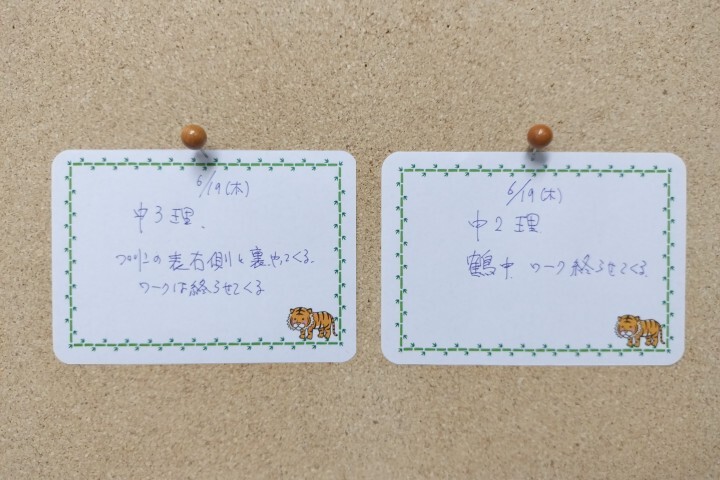 6/19(木)
中3理.
プリントの表右側と裏やってくる.
ワークは終らせてくる
6/19(木)
中2理
鶴中. ワーク終らせてくる.